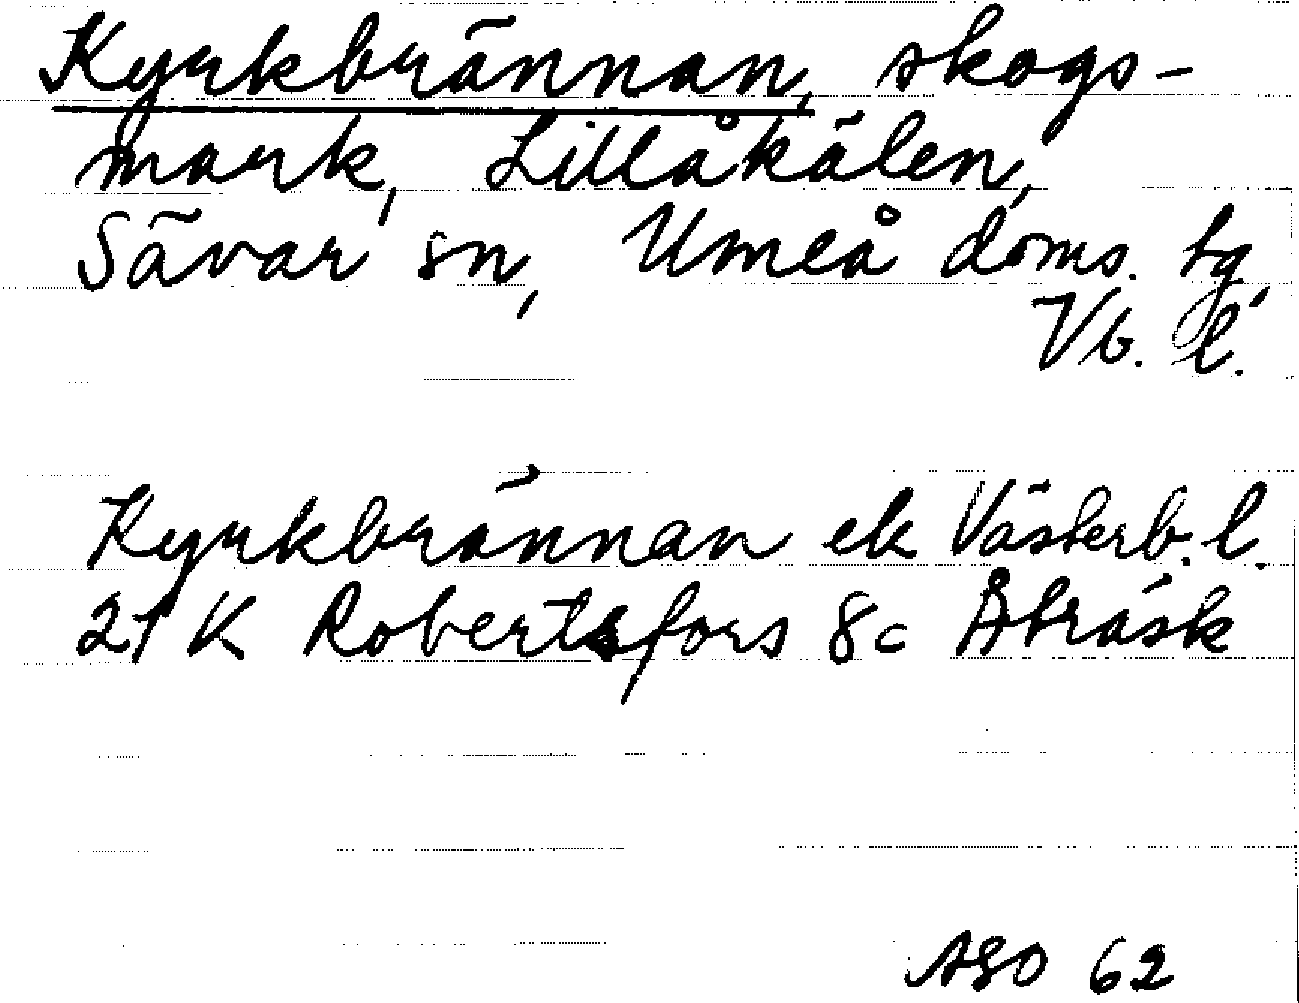 Kyrkbrännan, skogs-
mark, Lillåkälen,
Sävar sn, Umeå doms. tg,
Vb. l.
Kyrkbrännan ek Västerb. l.
21 K Robertsfors 8c Åträsk
ASO 62